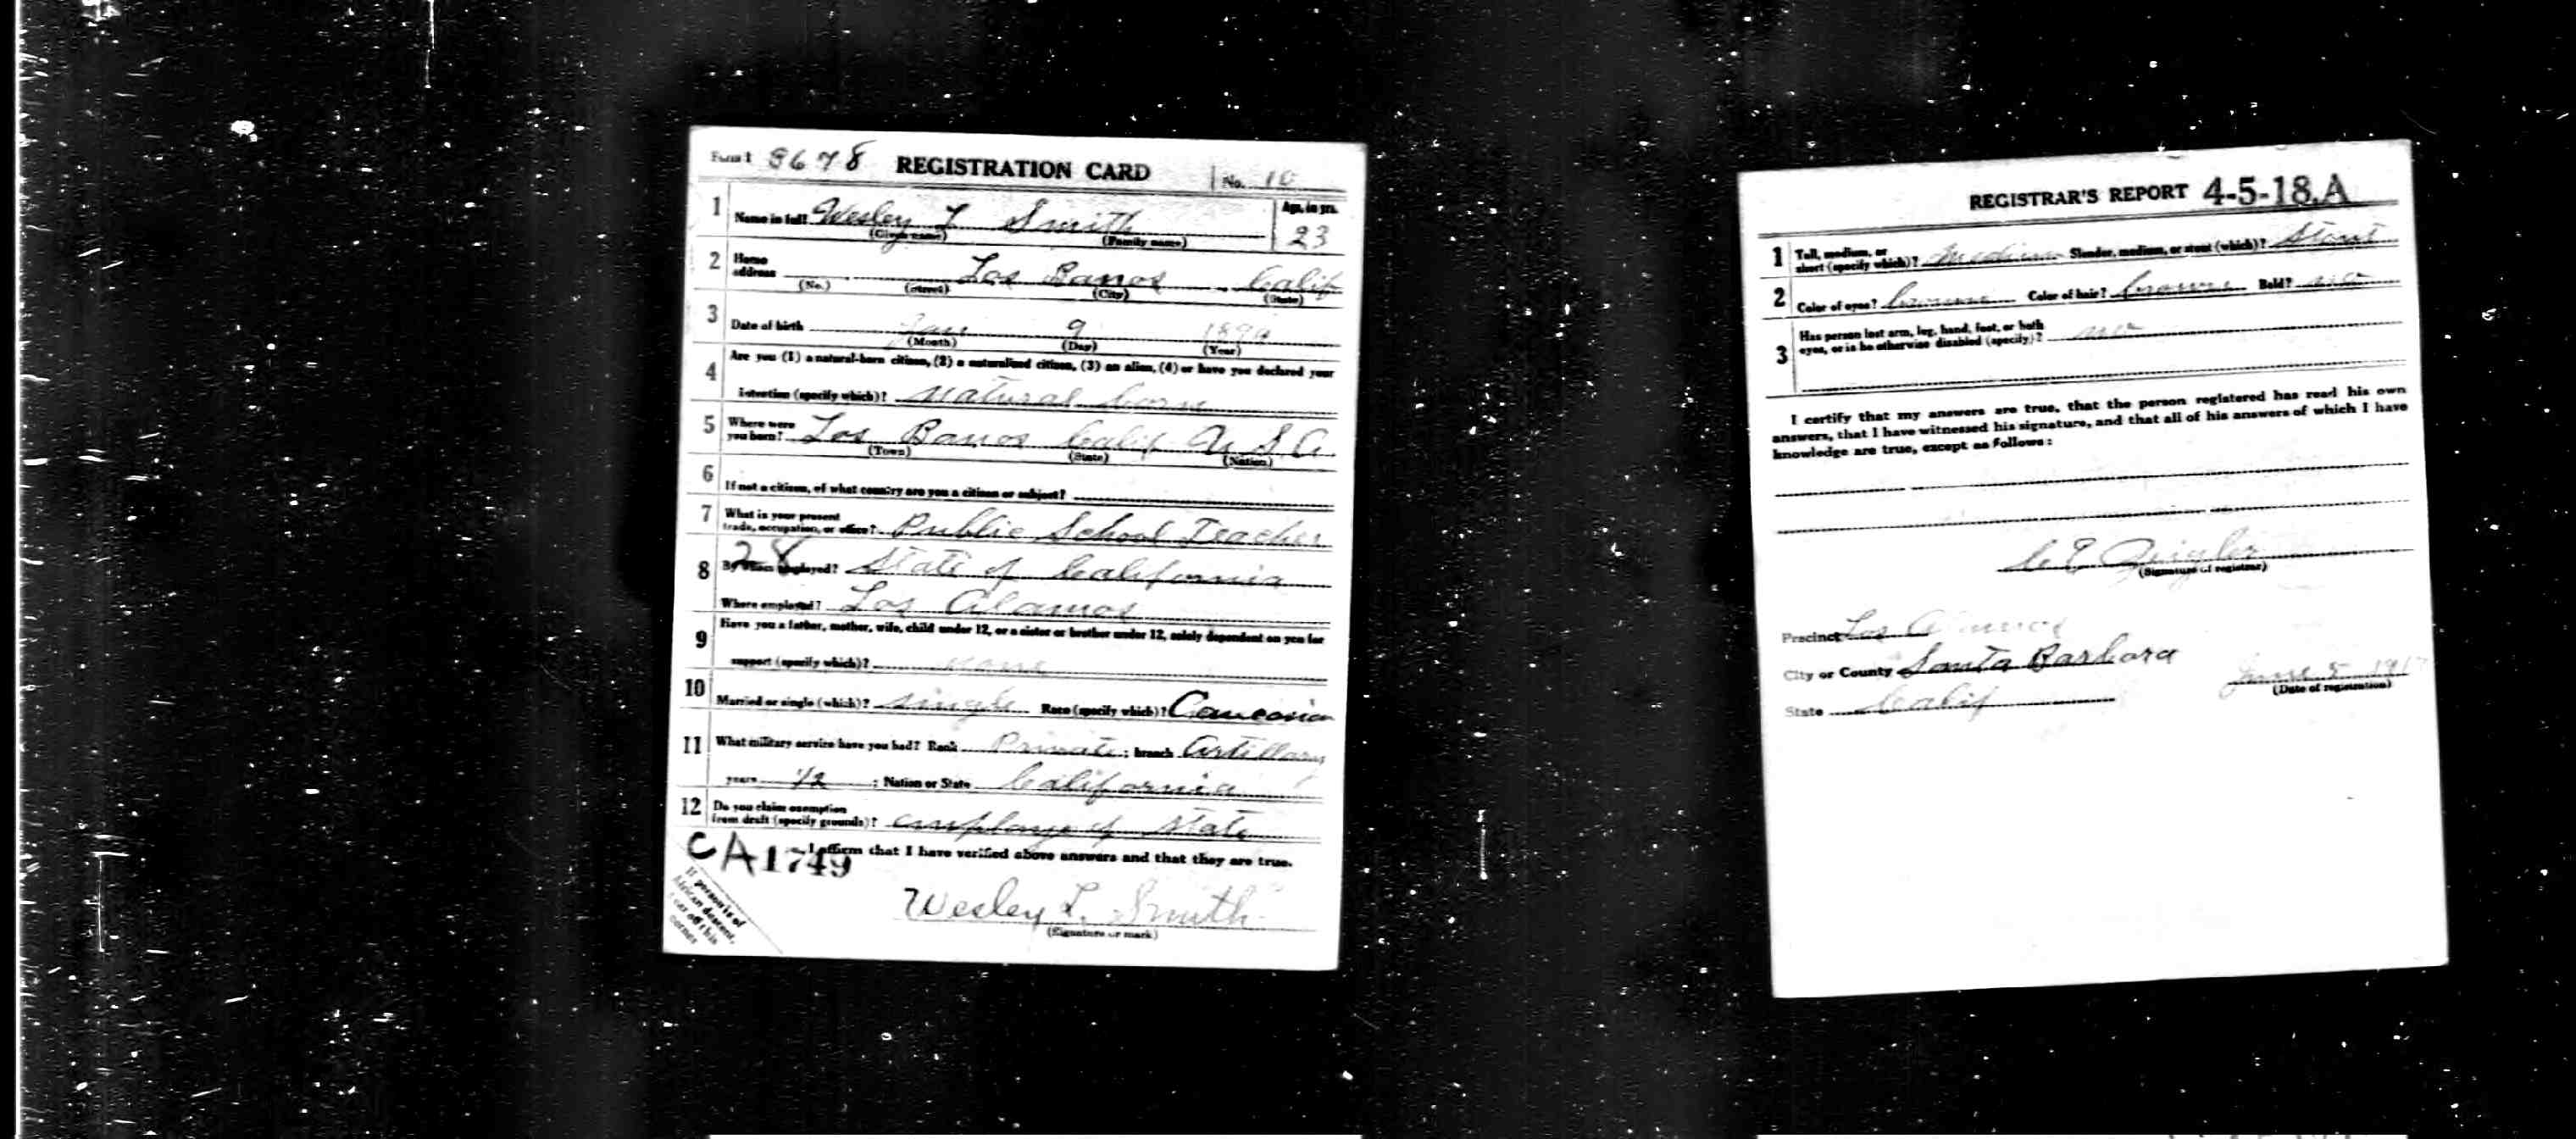 Form 1 3678 REGISTRATION CARD No. 10
1 Name in full Wesley L Smith Age, in yrs. 23
(Given name) (Family name)
2 Home address Los Banos Calif
(No.) (Street) (City) (State)
3 Date of birth Jan 9 1894
(Month) (Day) (Year)
4 Are you (1) a natural-born citizen, (2) a naturalized citizen, (3) an alien, (4) or have you declared your
intention (specify which)? Natural born
5 Where were you born? Los Banos Calif U S A
(Town) (State) (Nation)
6 If not a citizen, of what country are you a citizen or subject?
7 What is your present trade, occupation, or office? Public School Teacher
28
8 By whom employed? State of California
Where employed? Los Alamos
9 Have you a father, mother, wife, child under 12, or a sister or brother under 12, solely dependent on you for
support (specify which)? None
10 Married or single (which)? Single Race (specify which)? Caucasian
11 What military service have you had? Rank Private ; branch Artillary
years 1/2 ; Nation or State California
12 Do you claim exemption from draft (specify grounds)? employe of State
I affirm that I have verified above answers and that they are true.
CA 1749
Wesley L. Smith
(Signature or mark)
If person is of
African descent,
tear off this
corner
REGISTRAR'S REPORT 4-5-18.A
1 Tall, medium, or short (specify which)? Medium Slender, medium, or stout (which)? Stout
2 Color of eyes? brown Color of hair? brown Bald? no
3 Has person lost arm, leg, hand, foot, or both
eyes, or is he otherwise disabled (specify)? no
I certify that my answers are true, that the person registered has read his own
answers, that I have witnessed his signature, and that all of his answers of which I have
knowledge are true, except as follows:
C E
(Signature of registrar)
Precinct Los Alamos
City or County Santa Barbara June 5 1917
State Calif (Date of registration)